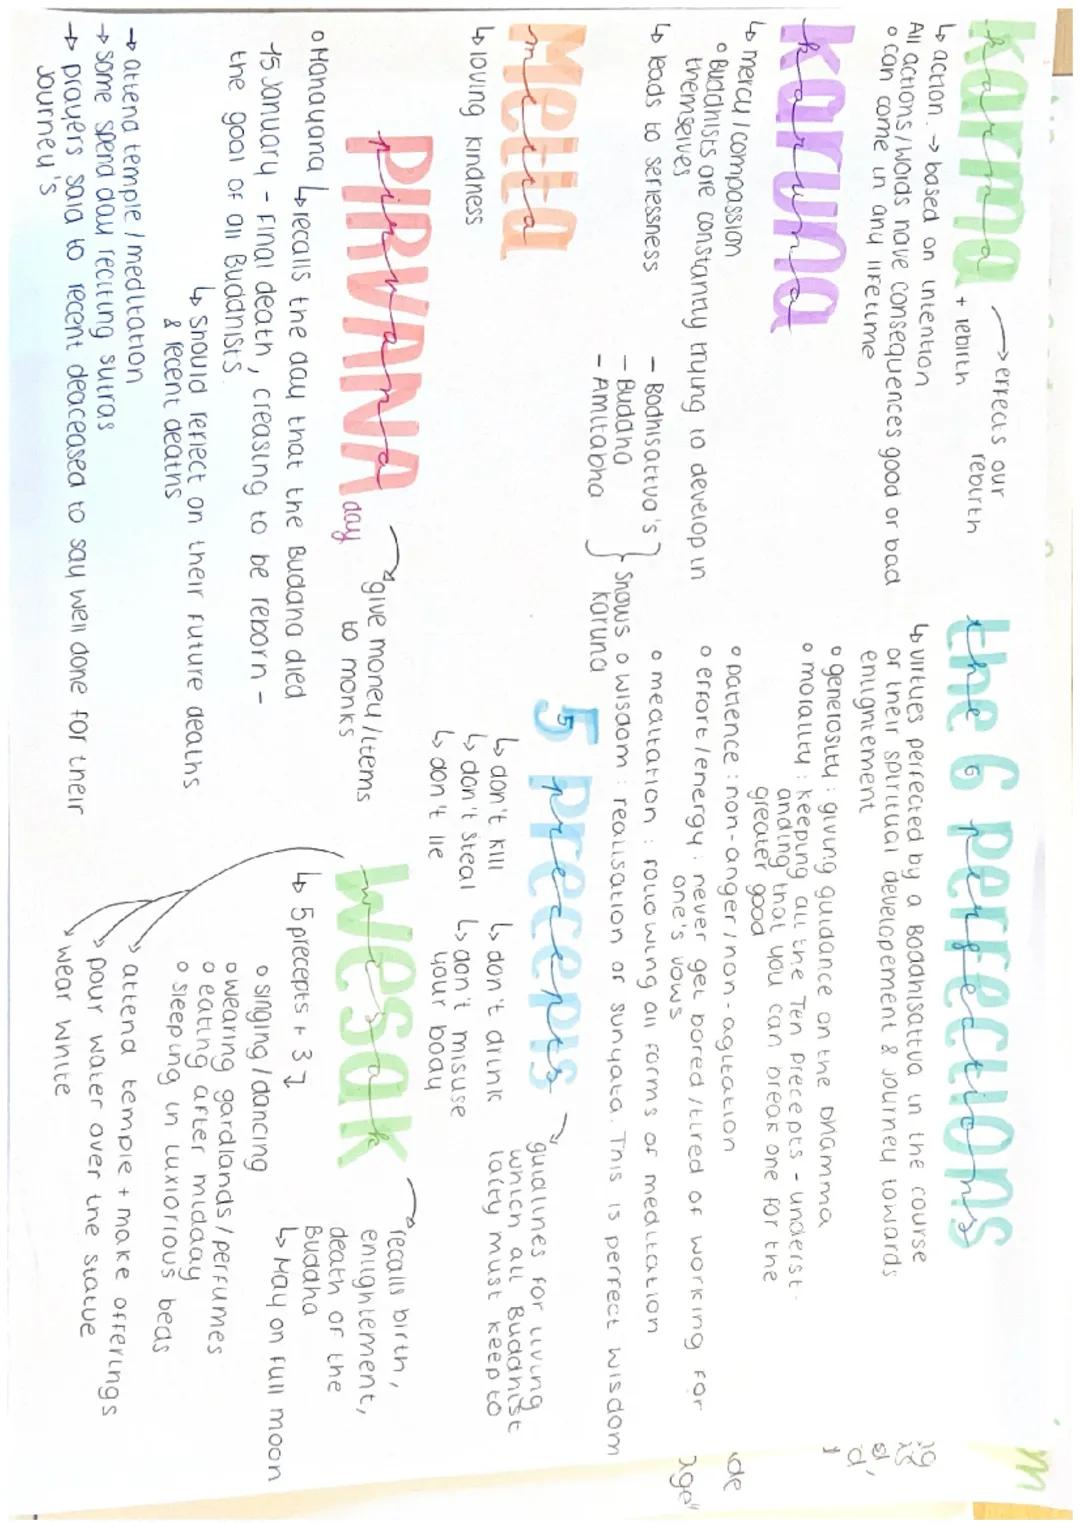 karma
karma
→ effects our
rebirth
↳ action → based on intention + rebirth
All actions/words have consequences good or bad
o can come in any lifetime
karuna
karuna
↳ mercy/compassion
o Buddhists are constantly trying to develop in
themselves
↳ leads to
- Bodhisattva's
- Buddha
- Amitabha
} shows
karuna
Metta
metta
↳ loving kindness
PIRVANA
pirvana
day
→ give money/items
to monks
o Mahayana ↳ recalls the day that the Buddha died
15 January - final death, creasing to be reborn -
the goal of all Buddhists
↳ should reflect on their future deaths
& recent deaths
→ attend temple/meditation
→ some spend day reciting sutras
→ prayers said to recent deaceased to say well done for their
journey's
the 6 perfections
the 6 perfections
↳ virtues perfected by a Boadhisattva in the course
of their spiritual developement & journey towards
enlightement
o generosity : giving guidance on the Dhamma
o morality : keeping all the Ten Precepts - underst-
anding that you can break one for the
greater good
o patience : non-anger/non-agitation
o effort/energy : never get bored/tired of working for
one's vows
o meditation : following all forms of meditation
o wisdom : realisation of sunyata. This is perfect wisdom
5 precepts
precepts
→ guidlines for living
which all Buddhist
laity must keep to
↳ don't kill
↳ don't steal
↳ don't lie
↳ don't drink
↳ don't misuse
your body
wesak
wesak
→ recalls birth,
enlightement,
death of the
Buddha
↳ May on full moon
↳ 5 precepts + 3
o singing/dancing
o wearing gardlands/perfumes
o eating after midday
o sleeping in luxiorious beds
→ attend temple + make offerings
→ pour water over the statue
→ wear white